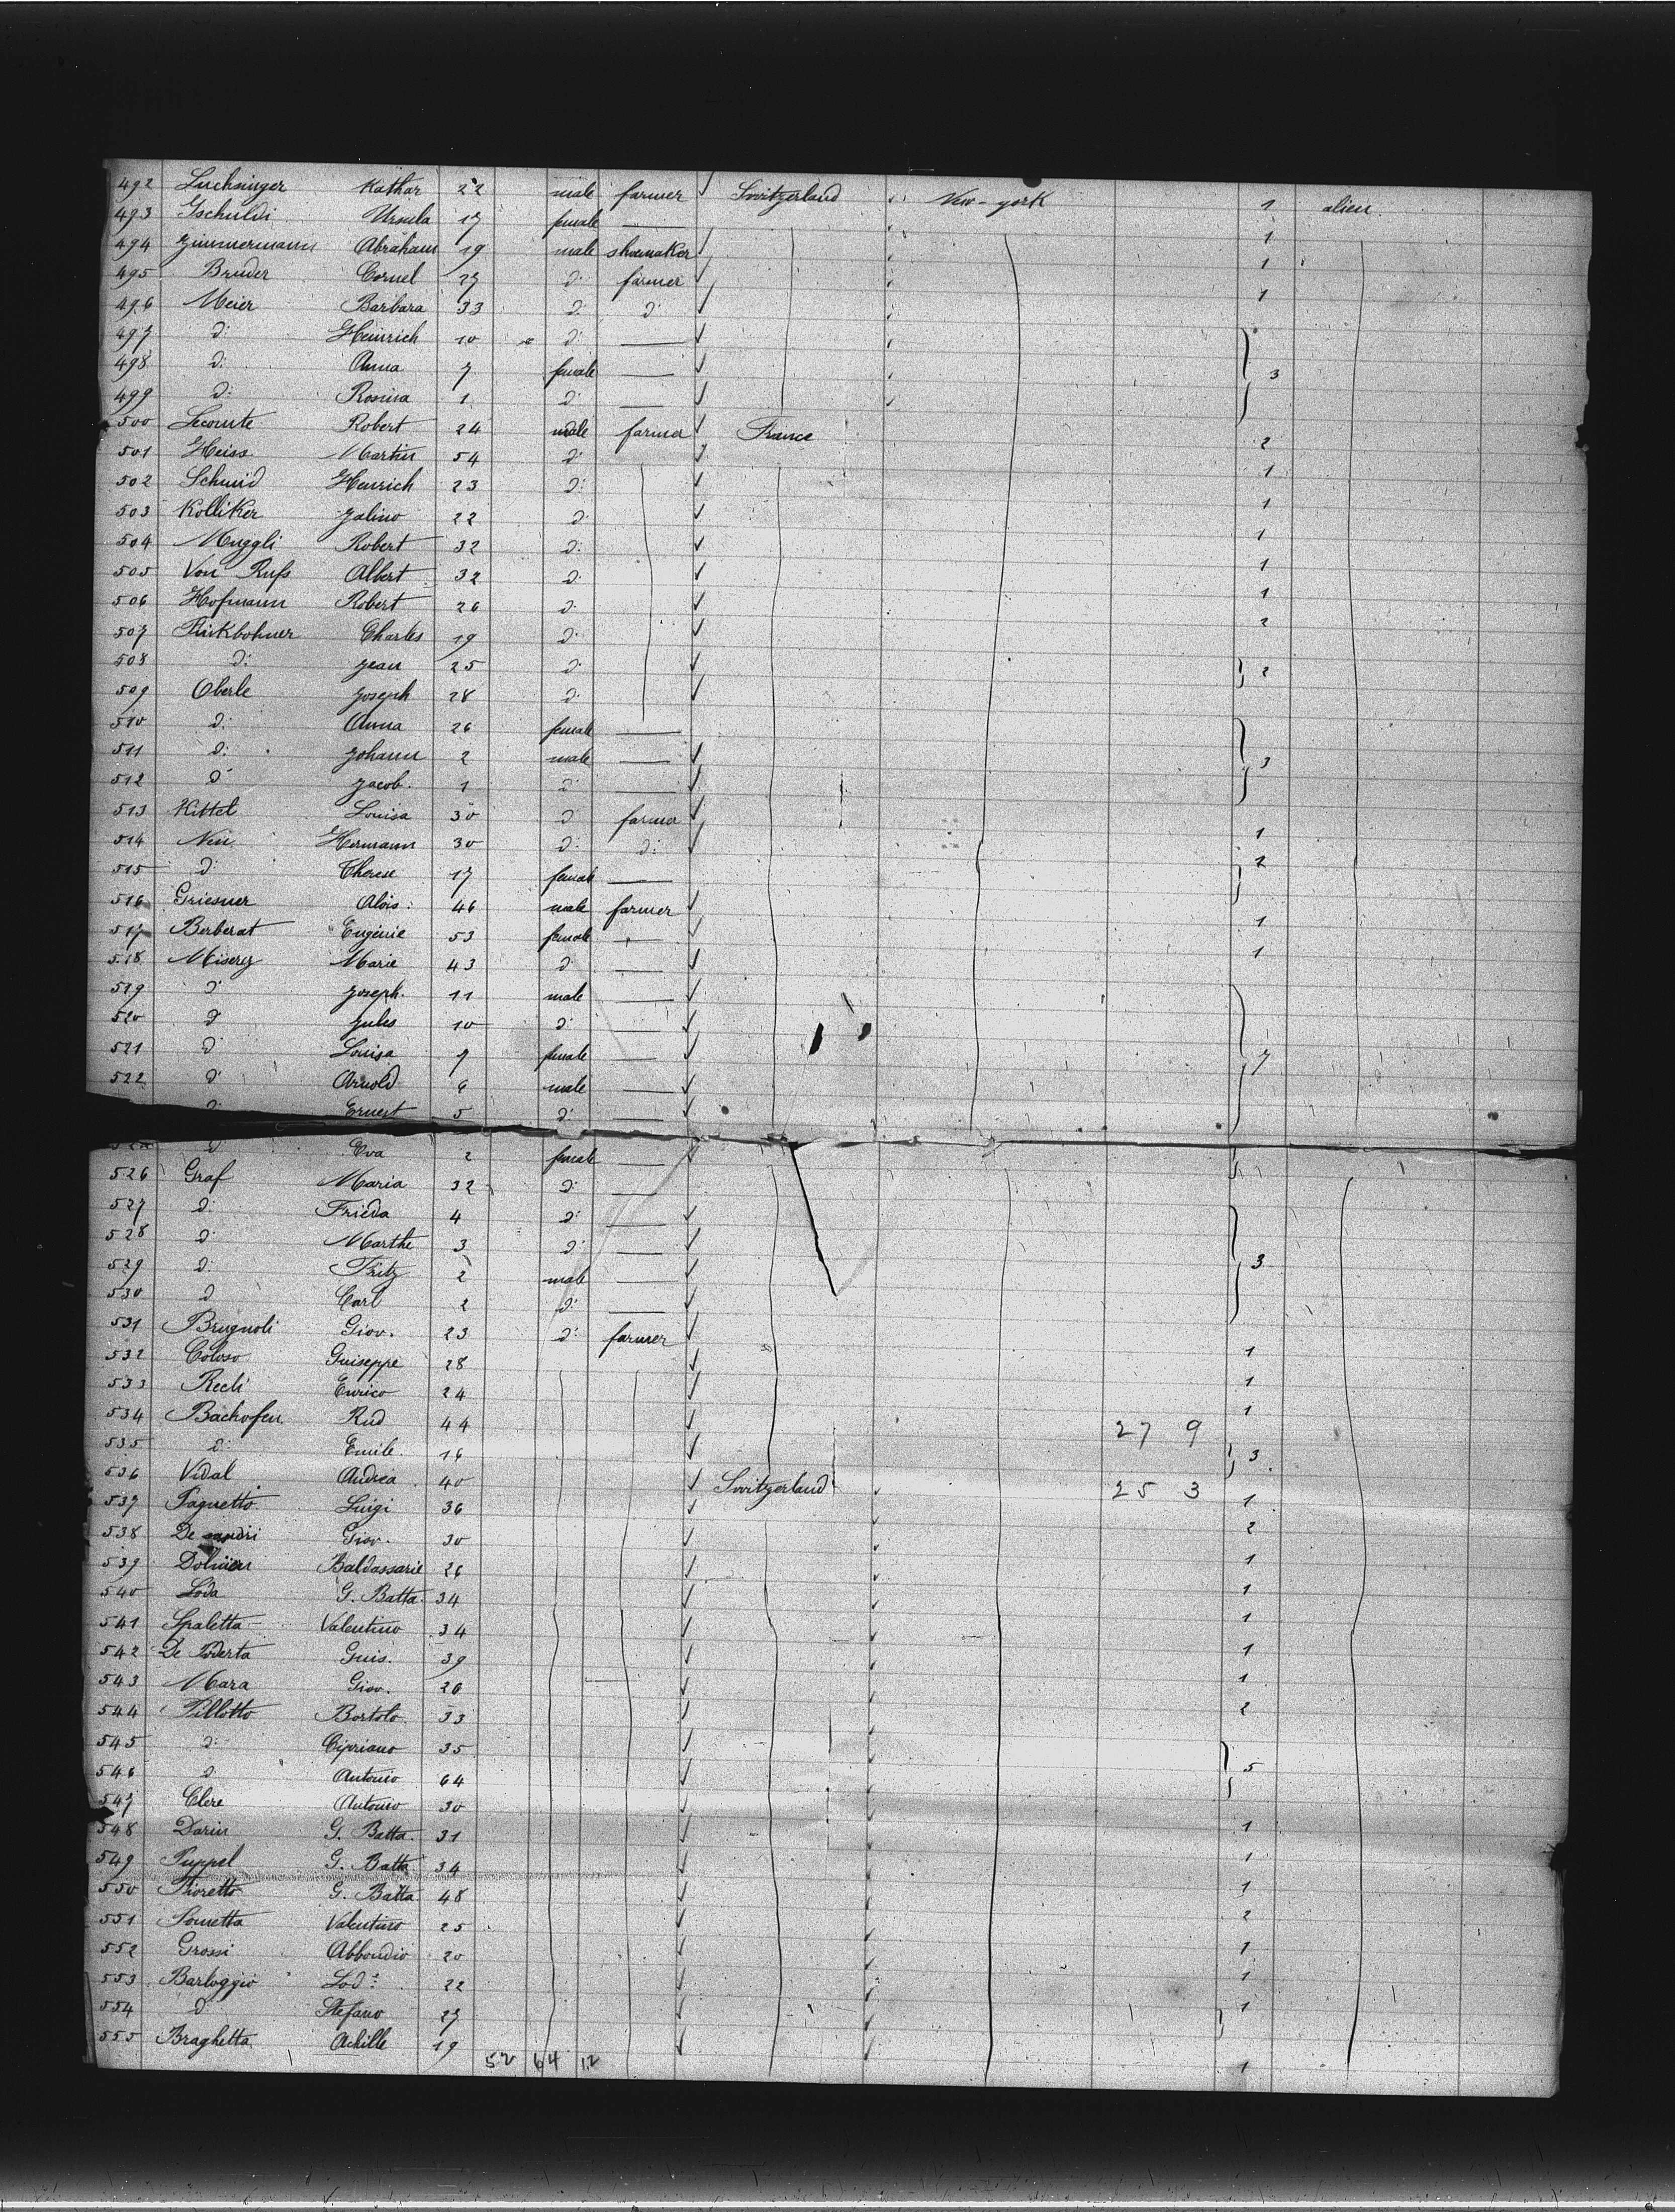 492 Luchsinger Kathar 22 male farmer Switzerland New-york 1 alien
493 Tschuldi Ursula 17 female 1
494 Zimmermann Abraham 19 male shoemaker 1
495 Bruder Cornel 27 d: farmer 1
496 Meier Barbara 33 d: d:
497 d: Heinrich 10 d:
498 d: Anna 7 female 3
499 d: Rosina 1 d:
500 Lecomte Robert 24 male farmer France 2
501 Heiss Martin 54 d: 1
502 Schmid Heinrich 23 d: 1
503 Kolliker Jalino 22 d: 1
504 Muggli Robert 32 d: 1
505 Von Rufs Albert 32 d: 1
506 Hofmann Robert 26 d: 2
507 Charles 19 d:
508 d: Jean 25 d: 2
509 Oberle Joseph 28 d:
510 d: Anna 26 female
511 d: Johann 2 male 3
512 d: Jacob 1 d:
513 Kittel Louisa 30 d: farmer 1
514 Hermann 30 d: d: 2
515 d: Therese 17 female
516 Griesner Alois 46 male farmer 1
517 Berberat Eugénie 53 female 1
518 Miserez Marie 43 d:
519 d: Joseph 11 male
520 d: Jules 10 d:
521 d: Louisa 7 female 7
522 d: Arnold 6 male
d: Ernest 5 d:
d: Eva 2 female
526 Graf Maria 32 d:
527 d: Frieda 4 d:
528 d: Marthe 3 d:
529 d: Fritz 2 male 3
530 d: Carl 2 d:
531 Brugnoli Giov. 23 d: farmer
532 Coloso Guiseppe 28 1
533 Recli Enrico 24 1
534 Bachofen Rud 44 27 9 1
535 d: Emile 16 3
536 Vidal Andrea 40 Switzerland 25 3
537 Pagnetto Luigi 36 1
538 De Giov. 30 2
539 Baldassarie 26 1
540 Loda G. Batta 34 1
541 Spaletta Valentino 34 1
542 De Poderta Guis. 39 1
543 Mara Giov. 26 1
544 Pillotto Bortolo 33 2
545 d: Cipriano 35
546 d: Antonio 64 5
547 Clere Antonio 30
548 Darin G. Batta 31 1
549 Puppel G. Batta 34 1
550 Fioretto G. Batta 48 1
551 Valentino 25 2
552 Grossi Abbondio 20 1
553 Barloggio Lod: 22 1
554 d: Stefano 27 1
555 Braghetta Achille 19 1
52 64 12